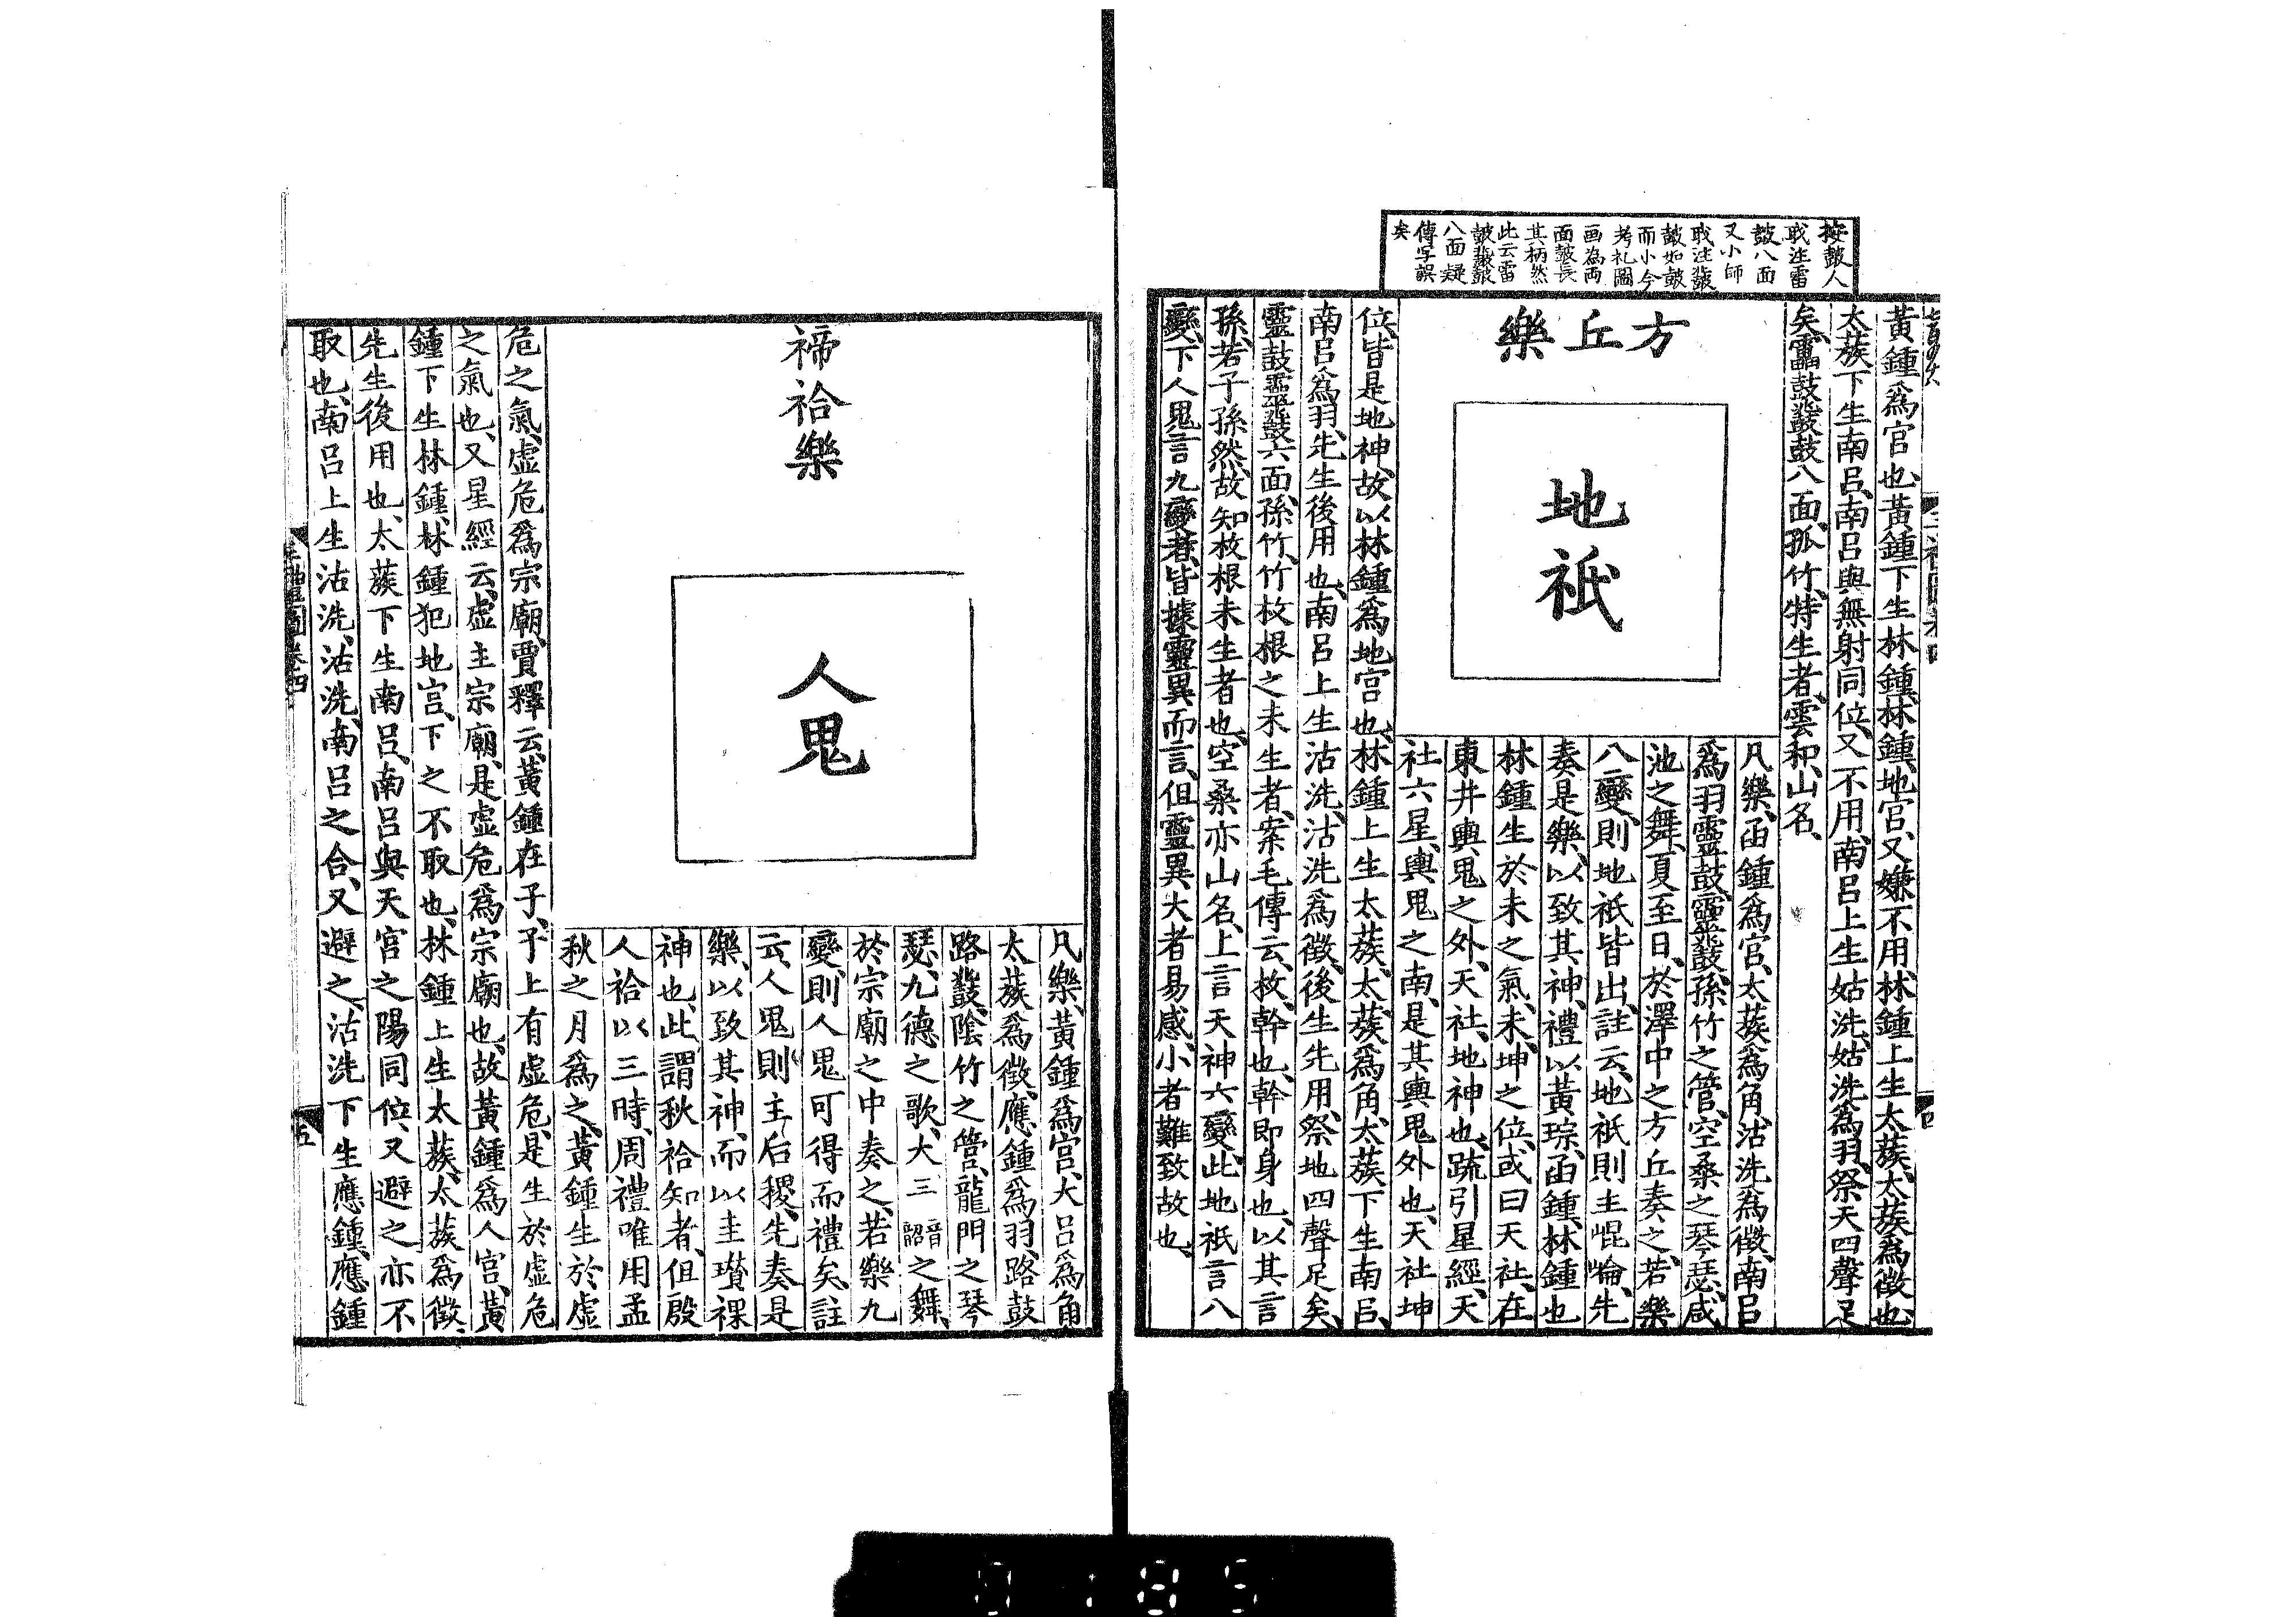 按鼓人
职注雷
鼓八面
又小師
职注鼗
鼓如鼓
而小今
考礼圖
画為両
面鼓長
其柄然
此云雷
鼓鼗鼓
八面疑
傳写誤
矣
黃鍾爲宮也、黃鍾下生林鍾、林鍾、地宮、又嫌不用、林鍾上生太蔟、太蔟爲徵也、
太蔟下生南呂、南呂與無射同位、又不用、南呂上生姑洗、姑洗爲羽、祭天四聲足
矣、靁鼓鼗鼓八面、孤竹、特生者、雲和、山名、
方丘樂
地祇
凡樂、函鍾爲宮、太蔟爲角、沽洗爲徵、南呂
爲羽、靈鼓、靈鼗、孫竹之管、空桑之琴瑟、咸
池之舞、夏至日、於澤中之方丘奏之、若樂
八變、則地祇皆出、註云、地祇則主崐崘、先
奏是樂、以致其神、禮以黃琮、函鍾、林鍾也
林鍾生於未之氣、未、坤之位、或曰天社、在
東井輿鬼之外、天社、地神也、疏引星經、天
社六星、輿鬼之南、是其輿鬼外也、天社坤
位、皆是地神、故以林鍾爲地宮也、林鍾上生太蔟、太蔟爲角、太蔟下生南呂、
南呂爲羽、先生後用也、南呂上生沽洗、沽洗爲徵、後生先用、祭地四聲足矣、
靈鼓靈鼗六面、孫竹、竹枚根之未生者、案毛傳云、枚、幹也、幹即身也、以其言
孫、若子孫然、故知枚根末生者也、空桑亦山名、上言天神六變、此地祇言八
變、下人鬼言九變者、皆據靈異而言、但靈異大者易感、小者難致故也、
禘祫樂
人鬼
凡樂、黃鍾爲宮、大呂爲角
太蔟爲徵、應鍾爲羽、路鼓
路鼗、陰竹之管、龍門之琴
瑟、九德之歌、大三韶音之舞、
於宗廟之中奏之、若樂九
變、則人鬼可得而禮矣、註
云、人鬼則主后稷、先奏是
樂、以致其神、而以圭瓚祼
神也、此謂秋祫知者、但殷
人祫以三時、周禮唯用孟
秋之月爲之、黃鍾生於虛
危之氣、虛危爲宗廟、賈釋云、黃鍾在子、子上有虛危、是生於虛危
之氣也、又星經云、虛主宗廟、是虛危爲宗廟也、故黃鍾爲人宮、黃
鍾下生林鍾、林鍾犯地宮、下之不取也、林鍾上生太蔟、太蔟爲徵、
先生後用也、太蔟下生南呂、南呂與天宮之陽同位、又避之亦不
取也、南呂上生沽洗、沽洗、南呂之合、又避之、沽洗下生應鍾、應鍾
三禮圖卷四
五